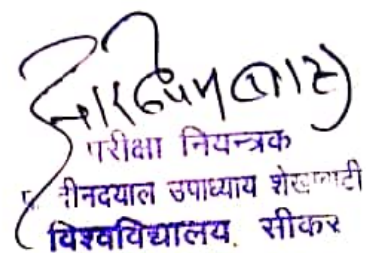 परीक्षा नियन्त्रक
दीनदयाल उपाध्याय शेखावाटी
विश्वविद्यालय, सीकर